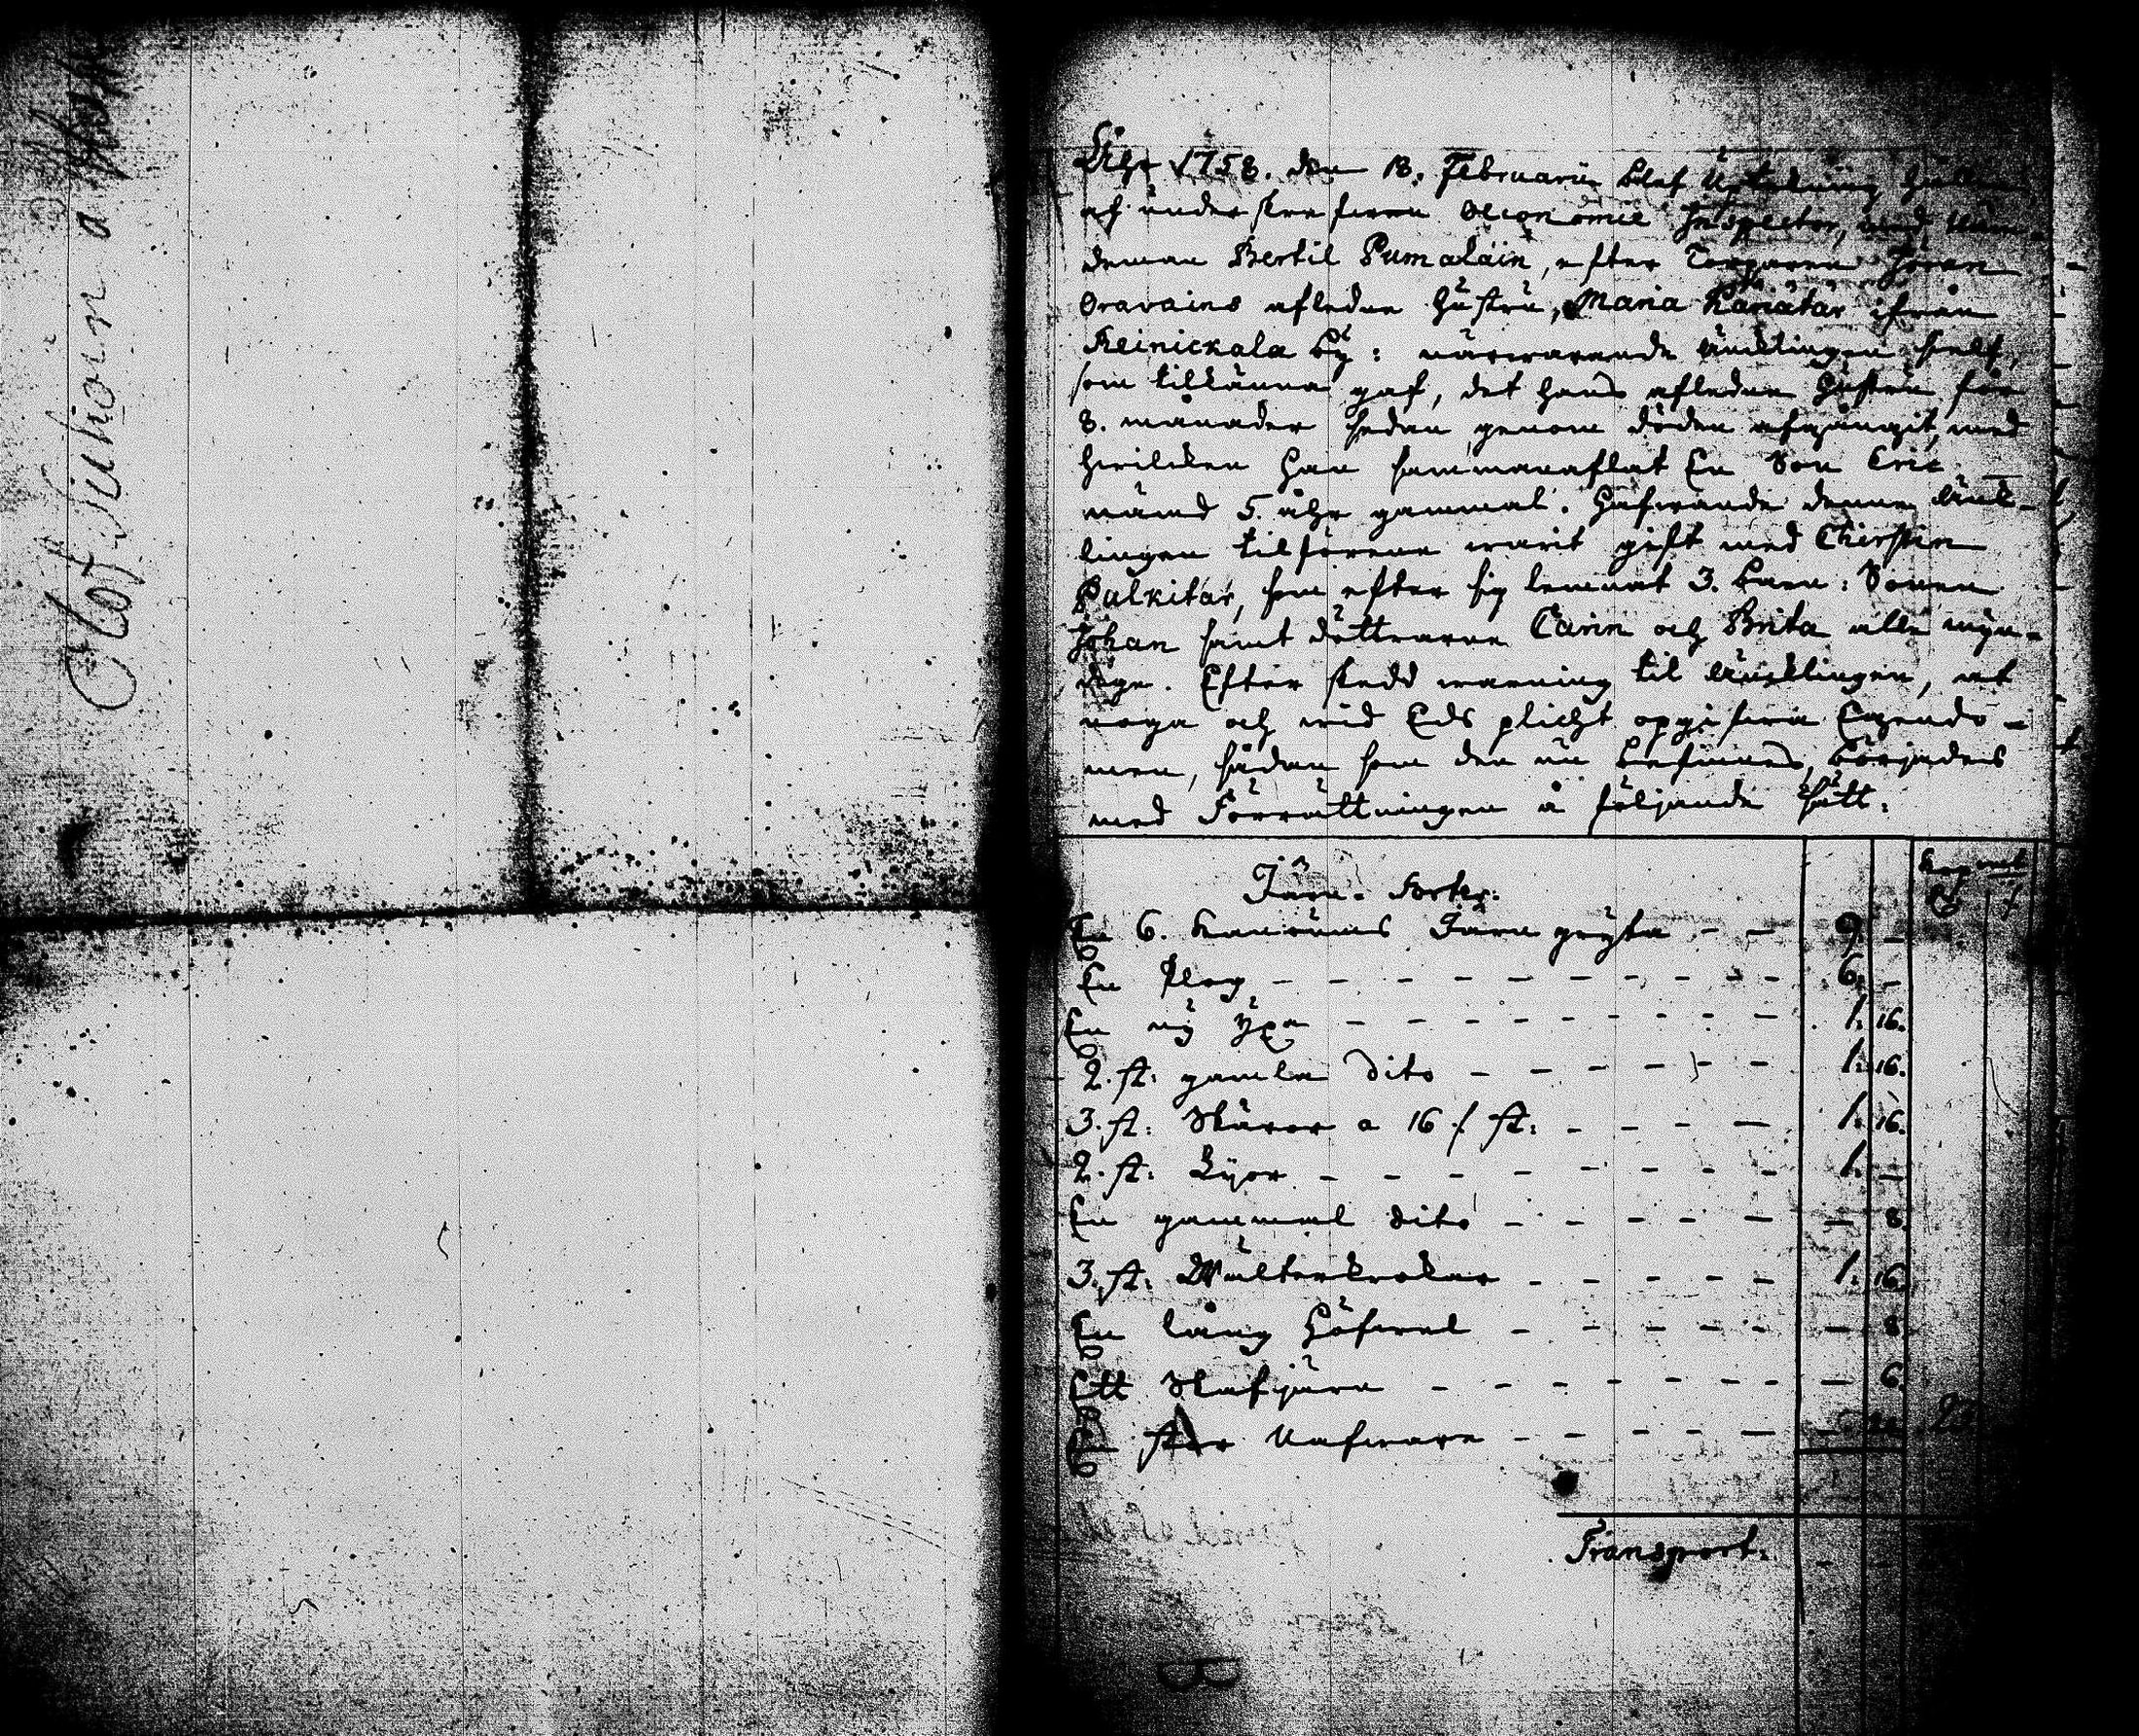 Olof Suhoin a
Åhr 1758. den 18. Februarii blef Upteckning hållen
af underskrefven Oeconomie Inspector, med Näm-
deman Bertil Pumalain, efter Torparen Jöran
Oravains afledne hustru, Maria Kanatar ifrån
Reinickala by: närwarande änklingen sielf,
som tillkänna gaf, det hans afledne hustru för
8. månader sedan genom döden afgångit, med
hwilcken han sammanaflat En Son Eric
nämd 5 åhr gammal. Hafwande denne änk-
lingen tilförene warit gift med Chirstin
Pulkitar, som efter sig lemnat 3. barn: Sonen
Johan samt döttrarne Carin och Brita alla myn-
dige. Efter skedd warning til änklingen, at
noga och wid Eds plicht opgifwa Egendo-
men, sådan som den nu befinnes, börjades
med Förrättningen å följande sätt:
Järn. Sorter:
En 6. kannums Järn gryta - - 9. -
En Plog - - - 6. -
En ny yxa - - - 1. 16.
2. st: gamla dito - - - 1. 16.
3. st: Skäror a 16 / st: - - - 1. 16.
2. st: Lyor - - - 1. -
En gammal dito - - - - 8.
3. st: Wälterkrokar - - - 1. 16.
En lång Höfwel - - - - 8
Ett Skafjärn - - - - 6.
En stor Nafware - - -
Transport: